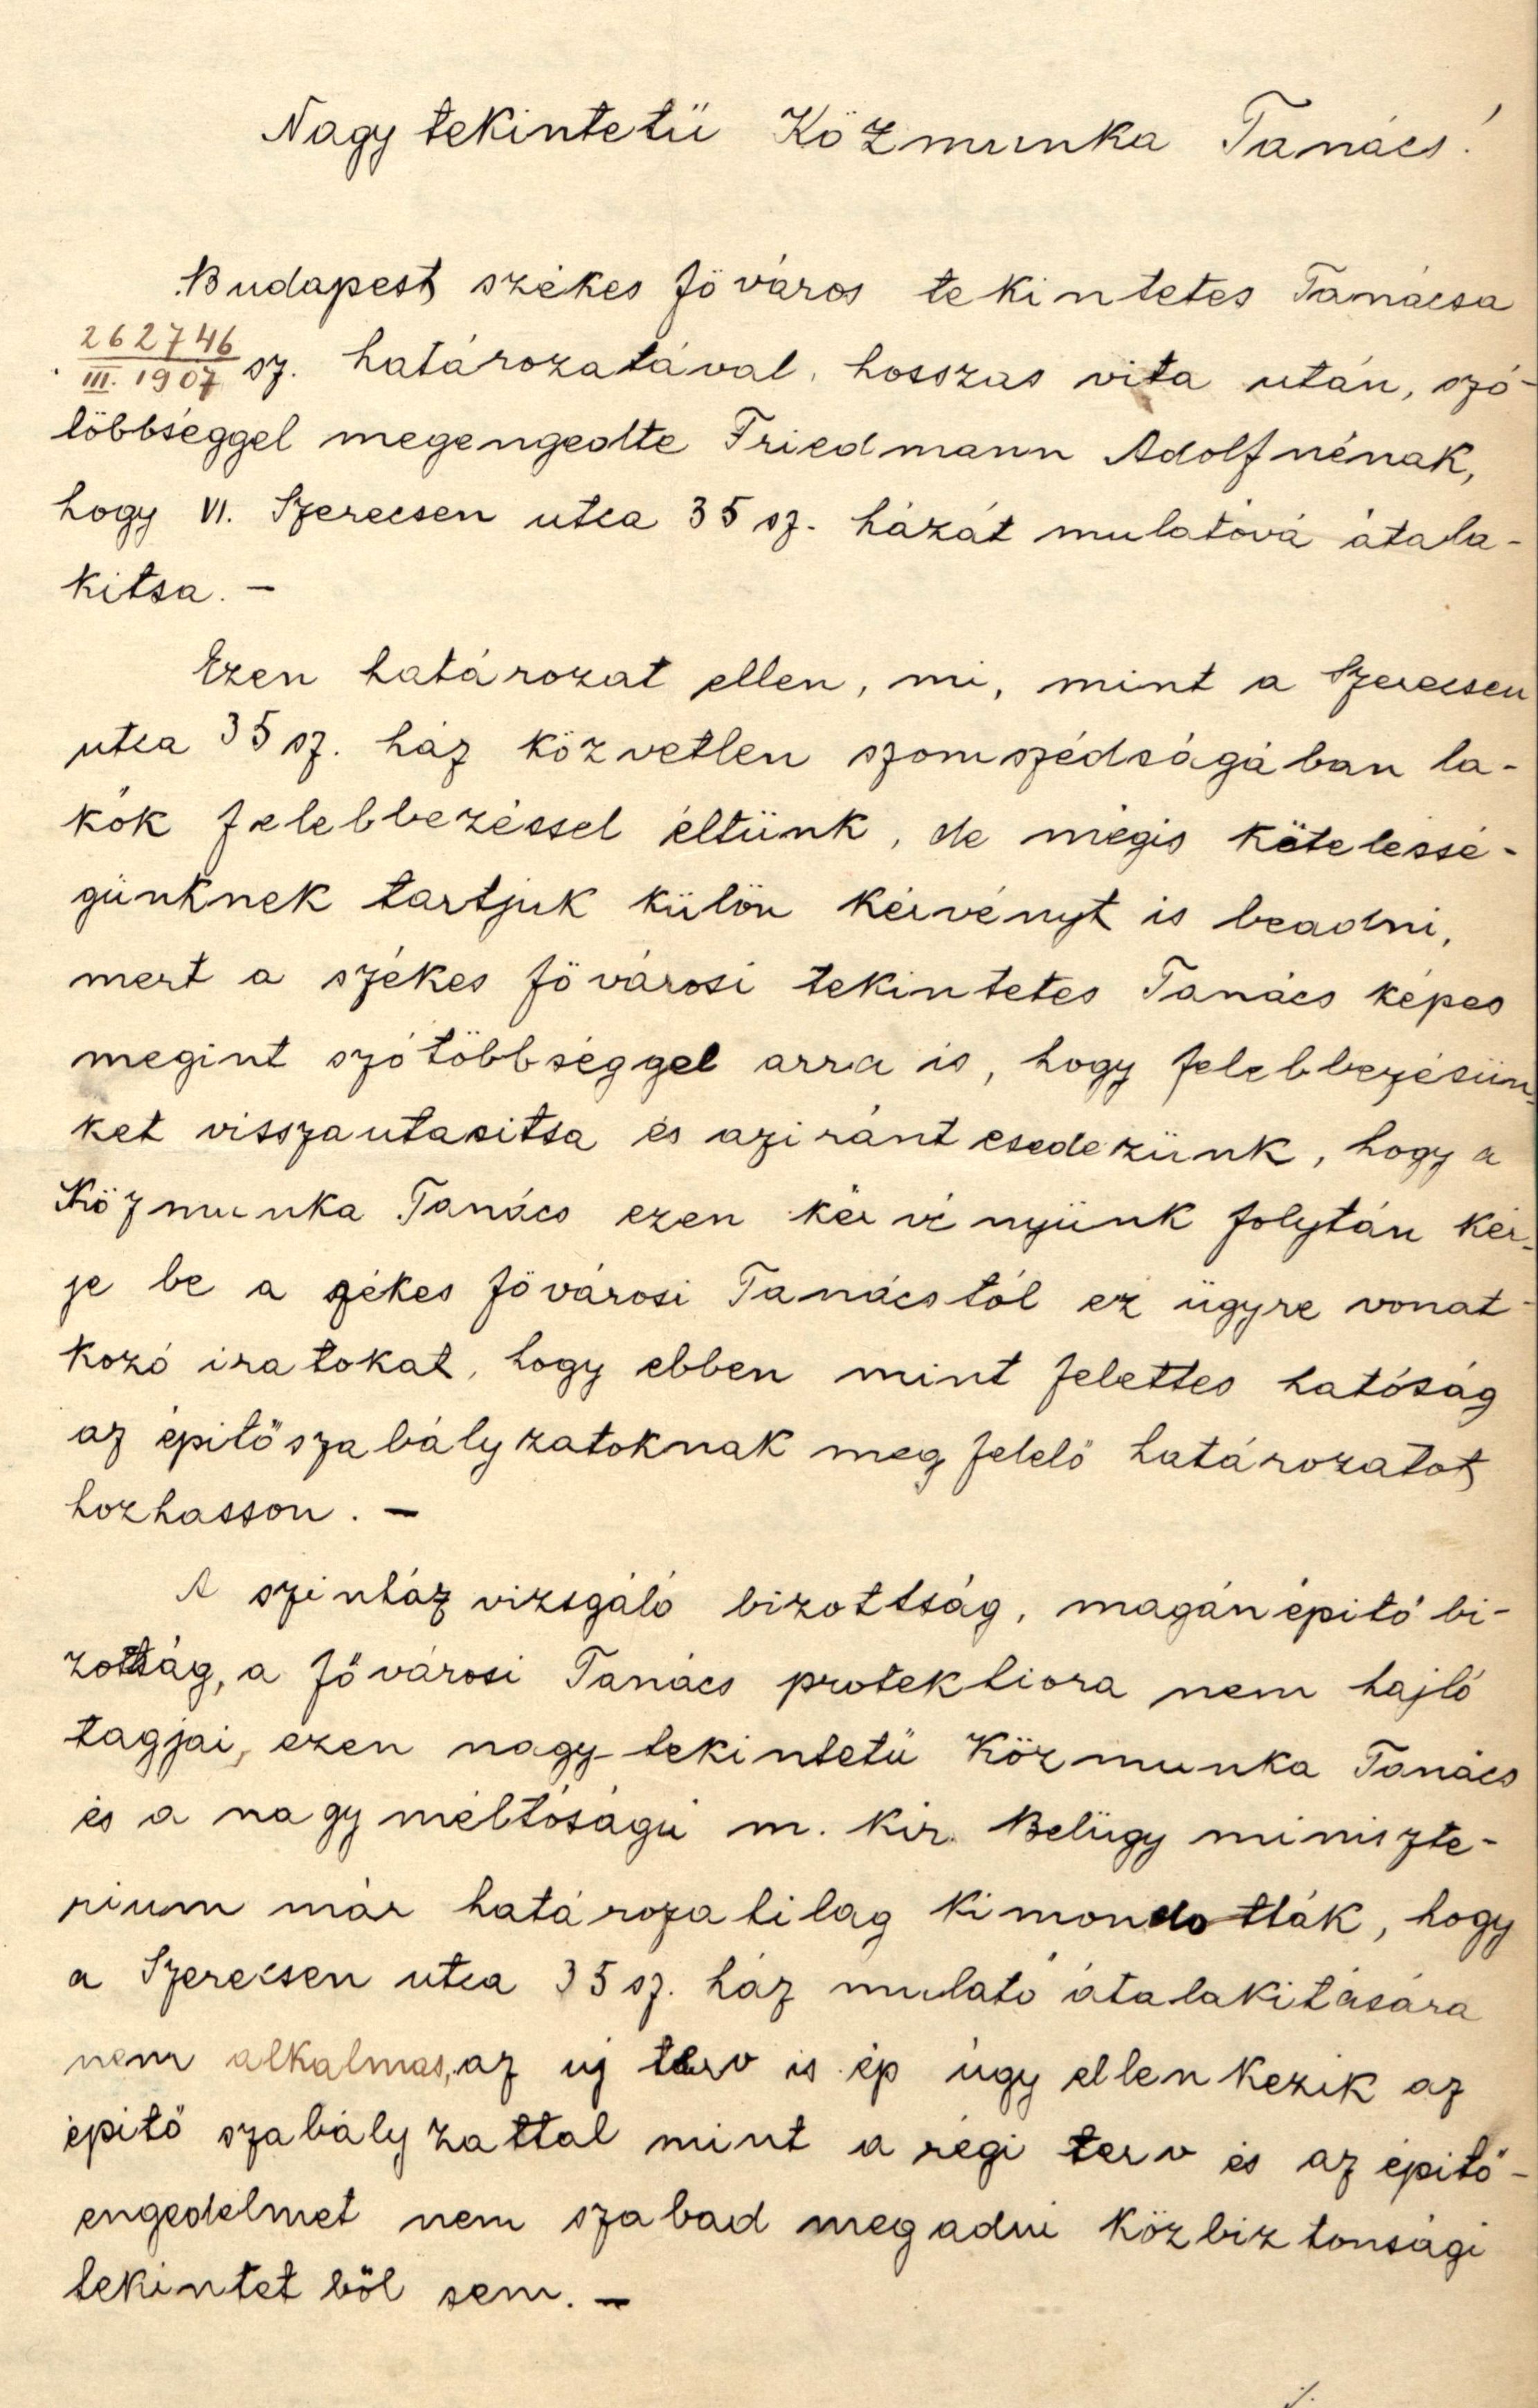 Nagytekintetü Közmunka Tanács!
Budapest székes főváros tekintetes Tanácsa
262746
III. 1907 sz. határozatával, hosszas vita után, szó-
többséggel megengedte Friedmann Adolfnénak,
hogy VI. Szerecsen utca 35 sz. házát mulatóvá átala-
kitsa. —
Ezen határozat ellen, mi, mint a Szerecsen
utca 35 sz. ház közvetlen szomszédságában la-
kók felebbezéssel éltünk, de mégis kötelessé-
günknek tartjuk külön kérvényt is beadni,
mert a székes fővárosi tekintetes Tanács képes
megint szótöbbséggel arra is, hogy felebbezésün-
ket visszautasitsa és aziránt esedezünk, hogy a
Közmunka Tanács ezen kérvényünk folytán kér-
je be a székes fővárosi Tanácstól ez ügyre vonat-
kozó iratokat, hogy ebben mint felettes hatóság
az épitőszabályzatoknak megfelelő határozatot
hozhasson. —
A szinházvizsgáló bizottság, magánépitő bi-
zottság, a fővárosi Tanács protektiora nem hajló
tagjai, ezen nagytekintetü Közmunka Tanács
és a nagyméltóságú m. kir. Belügyminiszte-
rium már határozatilag kimondották, hogy
a Szerecsen utca 35 sz. ház mulató átalakitására
nem alkalmas, az uj terv is ép úgy ellenkezik az
épitő szabályzattal mint a régi terv és az épitő-
engedelmet nem szabad megadni közbiztonsági
tekintetből sem. —
./.